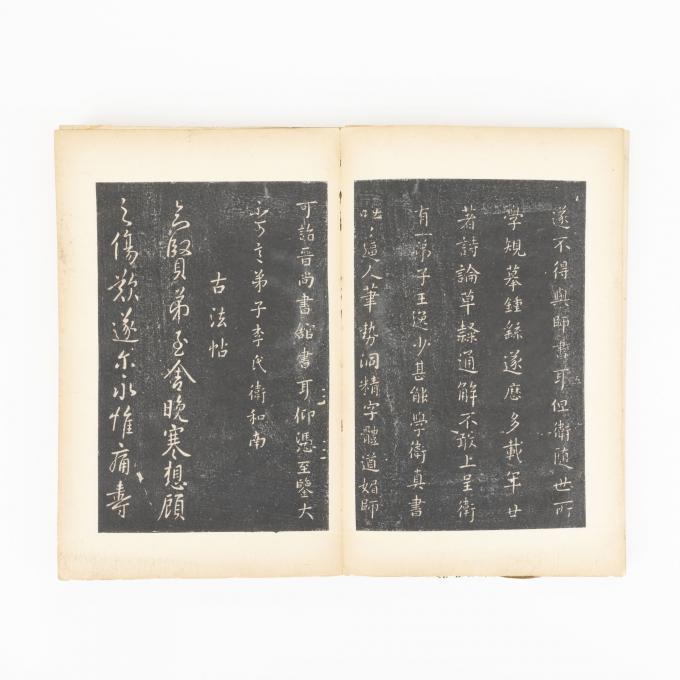 遂不得與師書耳但衛隨世所
學規摹鍾繇遂歷多載年廿
著詩論草隸通解不敢上呈衛
有一弟子王逸少甚能學衛真書
咄〻逼人筆勢洞精字體遒媚師
可詣晉尚書館書耳仰憑至鑒大
不可言弟子李氏衛和南
古法帖
賢弟至舍晚寒想顧
之傷歎遂尔永惟痛